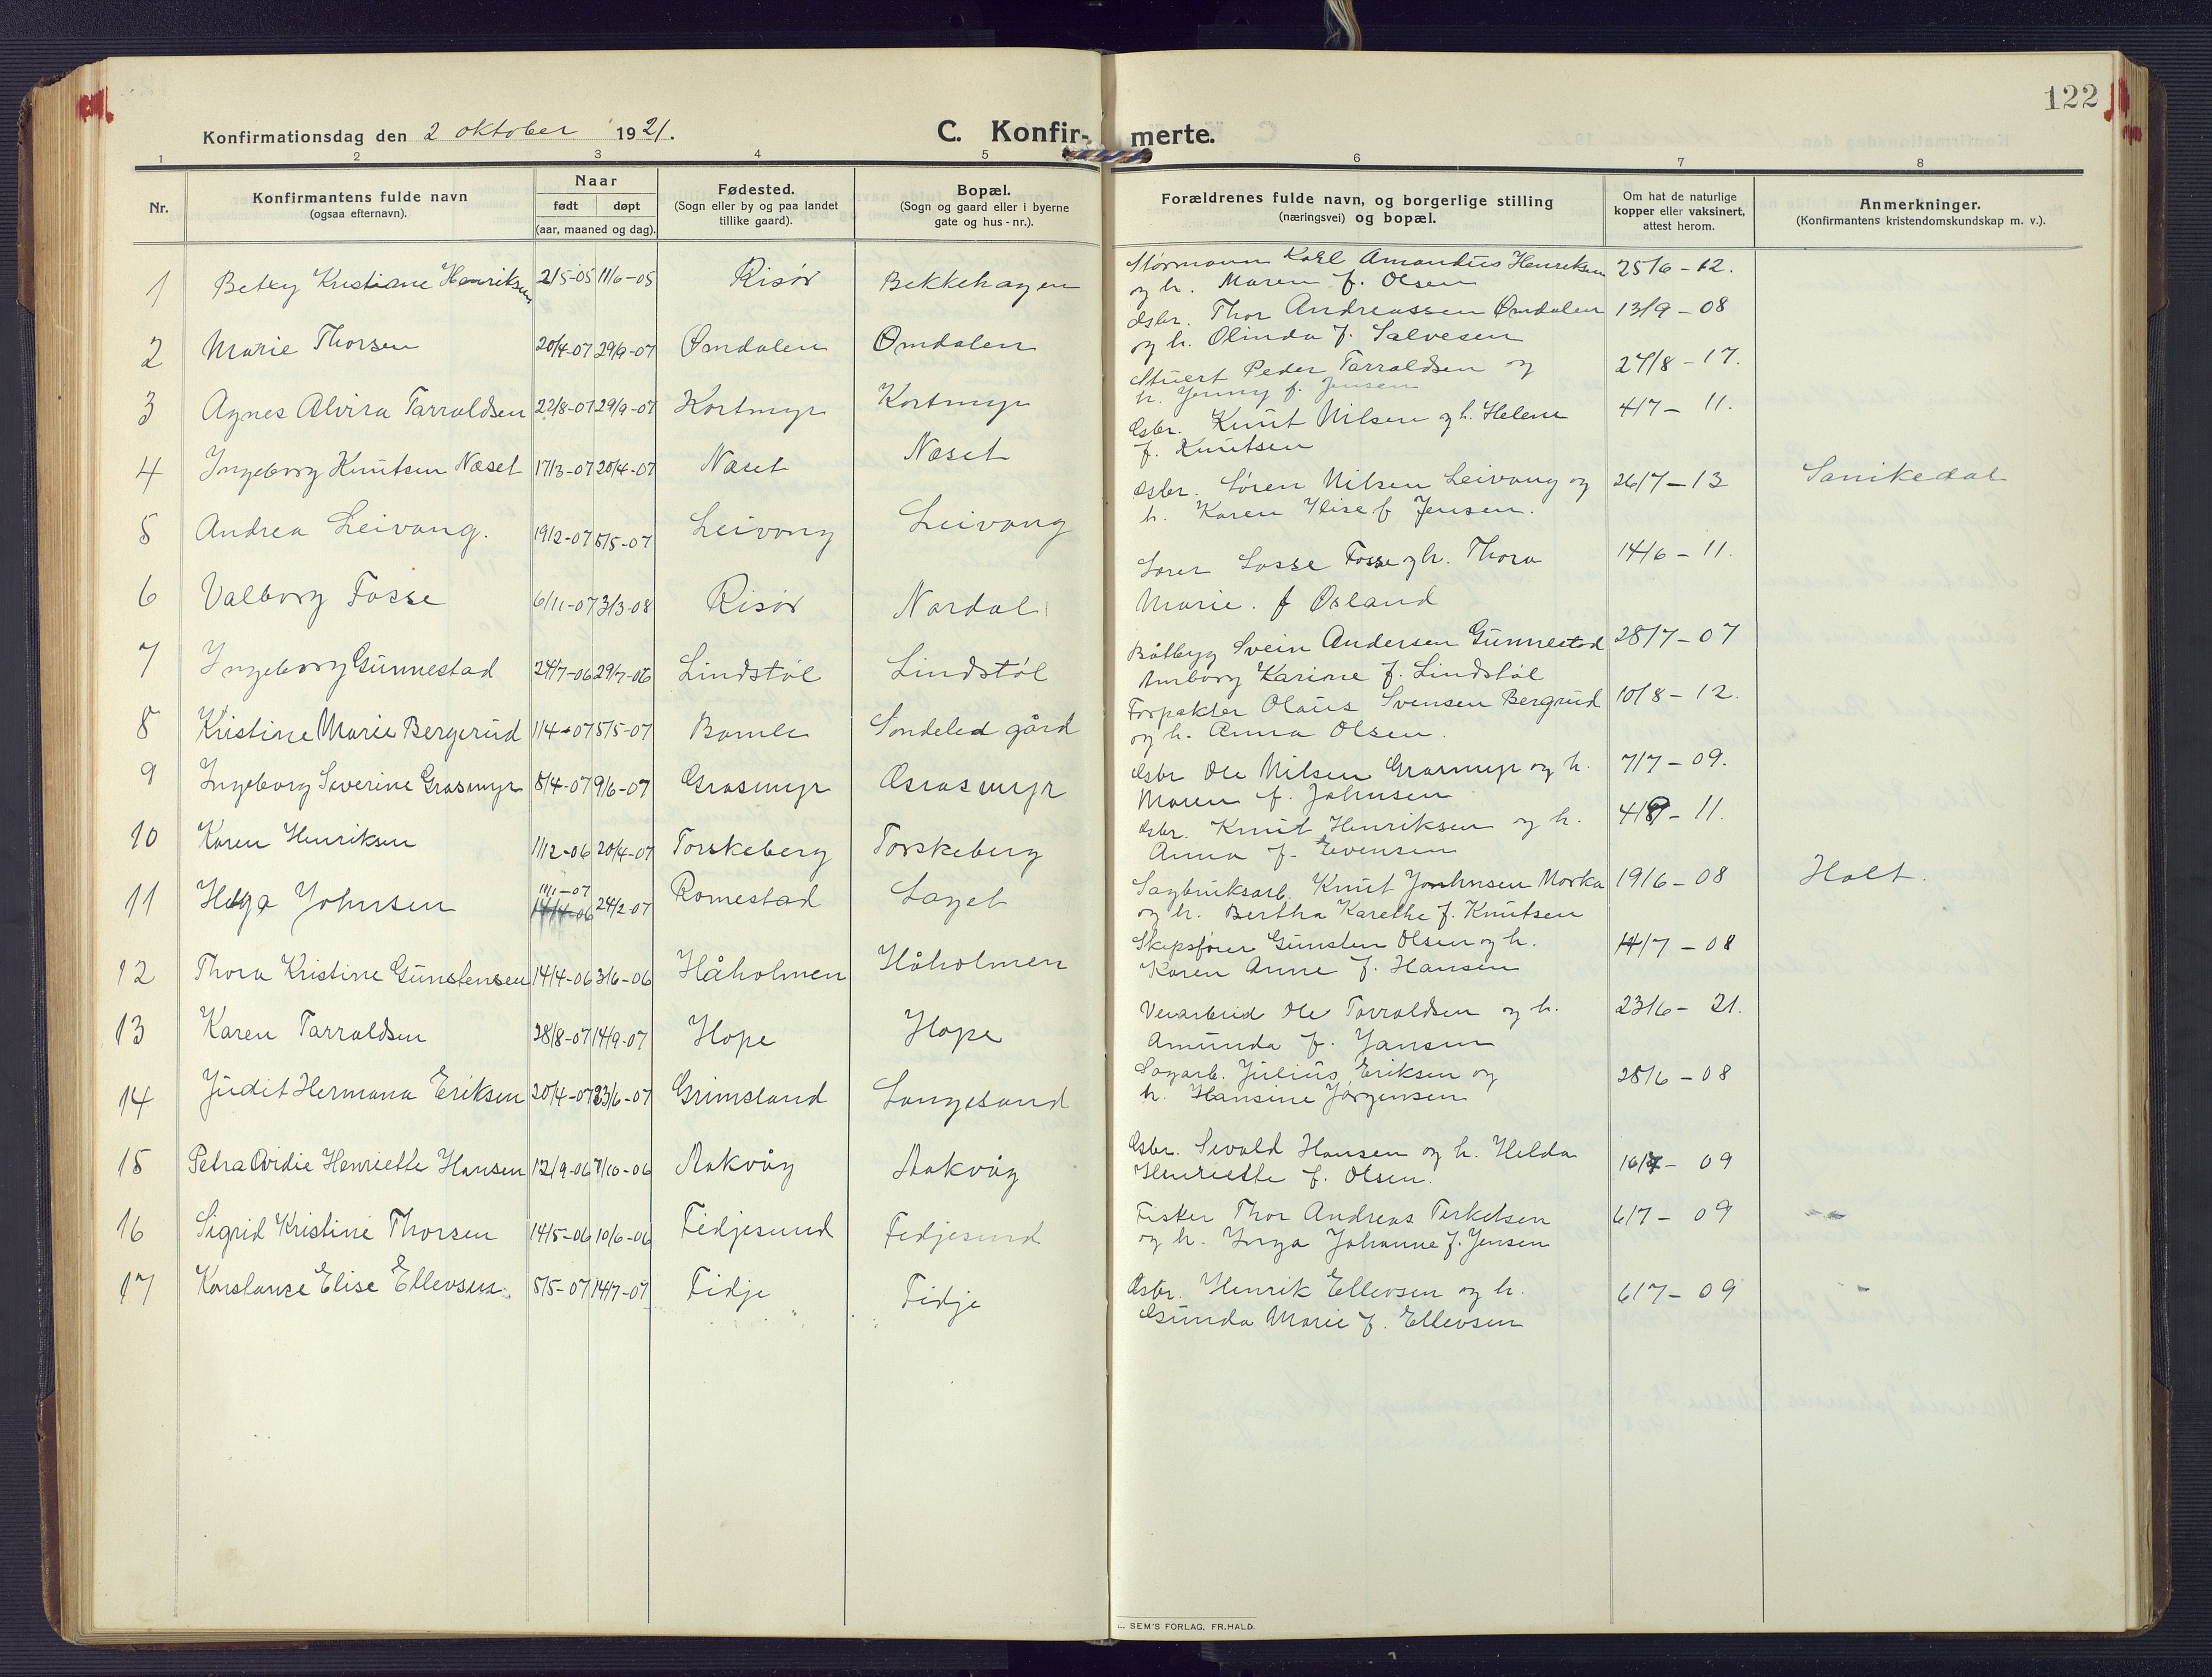 122
Konfirmationsdag den 2 oktober 1921.
C. Konfir- merte.
1 2 3 4 5 6 7 8
Nr.
Konfirmantens fulde navn
(ogsaa efternavn).
Naar
født døpt
(aar, maaned og dag).
Fødested.
(Sogn eller by og paa landet
tillike gaard).
Bopæl.
(Sogn og gaard eller i byerne
gate og hus-nr.).
Forældrenes fulde navn, og borgerlige stilling
(næringsvei) og bopæl.
Om hat de naturlige
kopper eller vaksinert,
attest herom.
Anmerkninger.
(Konfirmantens kristendomskundskap m. v.).
1 Betzy Kristiane Henriksen 2/5-05 11/6-05 Risør Bekkehagen
Størmann Karl Amandus Henriksen 25/6-12.
og h. Maren f. Olsen
2 Marie Thorsen 20/4-07 29/9-07 Omdalen Omdalen
Gsbr. Thor Andreassen Omdalen 13/9-08
og h. Olinda f. Salvesen
3 Agnes Alvira Tarraldsen 22/8-07 29/9-07 Kortmyr Kortmyr
Stuert Peder Tarraldsen og 27/8-17.
h. Jenny f. Jensen
4 Ingeborg Knutsen Næset 17/3-07 20/4-07 Næset Næset
Gsbr. Knut Nilsen og h. Helene 4/7-11.
f. Knutsen
5 Andrea Leivang. 19/2-07 5/5-07 Leivang Leivang
Gsbr. Søren Nilsen Leivang og 26/7-13 Sanikedal
h. Karen Elise f Jensen.
6 Valborg Fosse 6/11-07 3/3-08 Risør Nordal
Lasse Fosse og h. Thora 14/6-11.
Marie. f Øsland
7 Ingeborg Gunnestad 24/7-06 29/7-06 Lindstøl Lindstøl
Båtbyg Svein Andersen Gunnestad 28/7-07
Karine f. Lindstøl
8 Kristine Marie Bergerud 1/4-07 5/5-07 Bamle Søndeled gård
Forpakter Olaus Svensen Bergrud 10/8-12.
og h. Anna Olsen.
9 Ingeborg Severine Grasmyr 8/4-07 9/6-07 Grasmyr Grasmyr
Gsbr Ole Nilsen Grasmyr og h. 7/7-09.
Maren f. Johnsen
10 Karen Henriksen 11/12-06 20/4-07 Torskeberg Torskeberg
Gsbr. Knut Henriksen og h. 4/9-11.
Anna f. Evensen
11 Helga Johnsen 11/1-07 24/2-07 Romestad Laget
Sagbruksarb. Knut Johnsen Morka 19/6-08 Holt.
og h. Bertha Karethe f. Knutsen
12 Thora Kristine Gunstensen 14/4-06 3/6-06 Håholmen Håholmen
Skipsfører Gunsten Olsen og h. 14/7-08
Karen Anne f. Hansen
13 Karen Tarraldsen 28/8-07 14/9-07 Hope Hope
Veiarbeid Ole Tarraldsen og h. 23/6-21.
Amunda f. Jansen
14 Judit Hermana Eriksen 20/4-07 23/6-07 Grimsland Langesand
Sagarb. Julius Eriksen og 28/6-08
h. Hansine Jørgensen
15 Petra Ovidie Henriette Hansen 12/9-06 7/10-06 Aakvåg Aakvåg
Gsbr. Sevald Hansen og h. Helda 16/7-09
Henriette f. Olsen.
16 Sigrid Kristine Thorsen 14/5-06 10/6-06 Fidjesund Fidjesund
Fisker Thor Andreas Terkelsen 6/7-09
og h. Inga Johanne f. Jensen
17 Konstanse Elise Ellevsen. 5/5-07 14/7-07 Fidje Fidje
Gsbr. Henrik Ellevsen og h. 6/7-09
Gunda Marie f. Ellevsen
SEM'S FORLAG, FR.HALD.